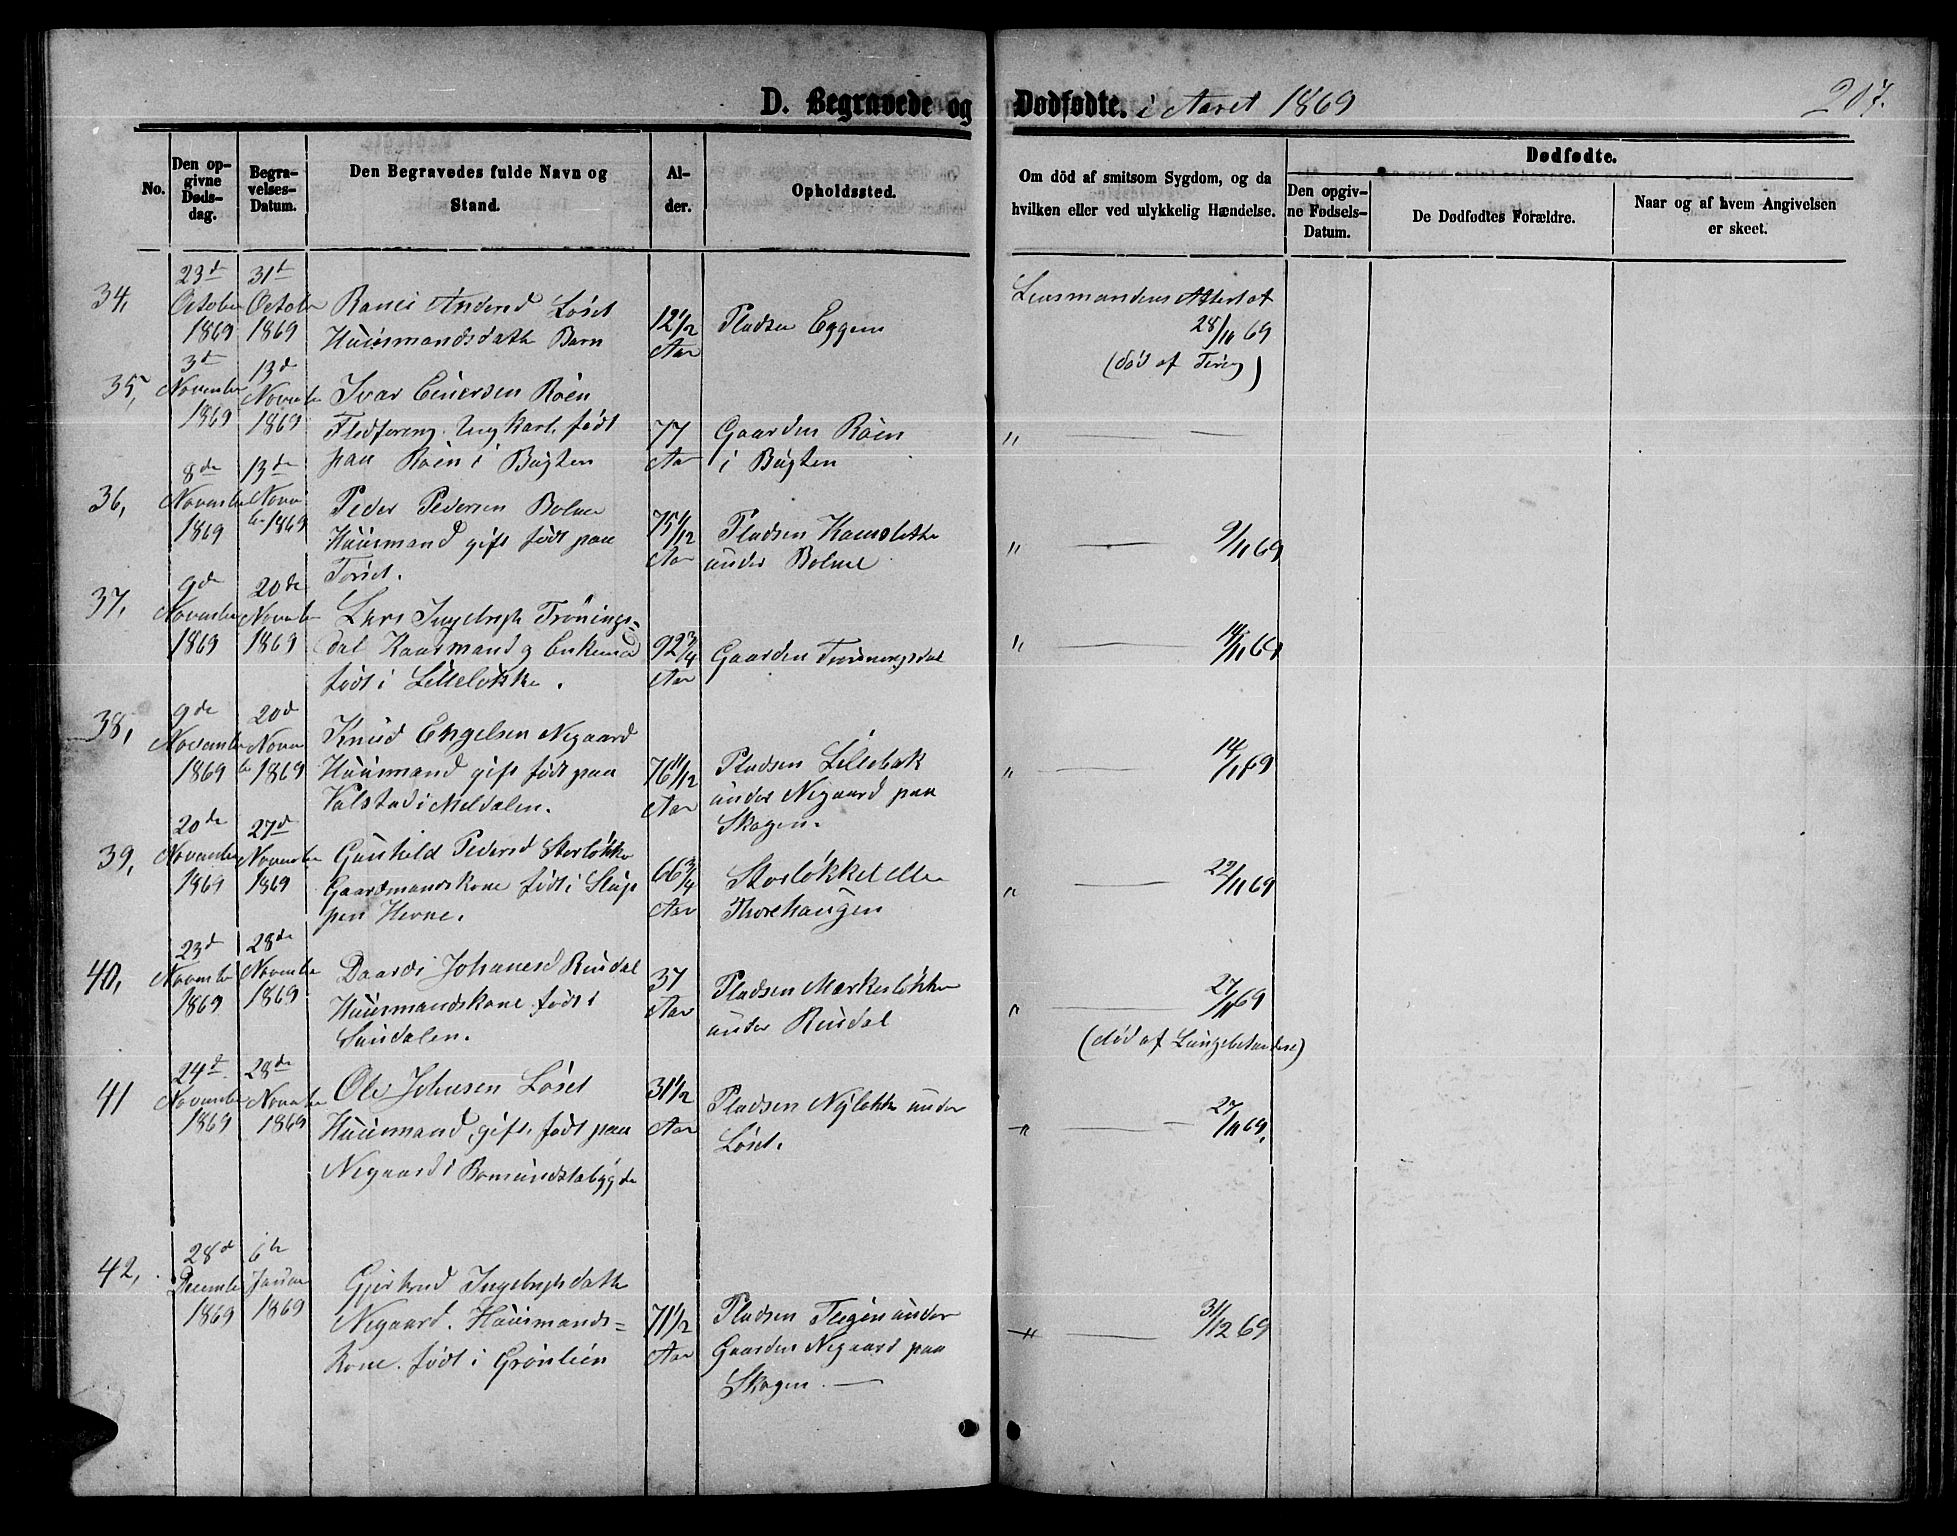 D. Begravede og Dødfødte. i Aaret 1869
207.
No.
Den op-
givne
Døds-
dag.
Begra-
velses-
Datum.
Den Begravedes fulde Navn og
Stand.
Al-
der.
Opholdssted.
Om död af smitsom Sygdom, og da
hvilken eller ved ulykkelig Hændelse.
Dødfødte.
Den opgiv-
ne Fødsels-
Datum.
De Dødfødtes Forældre.
Naar og af hvem Angivelsen
er skeet.
34,
23d
October
1869
31t
Octobe
1869
Anders Løset
Huusmandsdatte Barn
12 1/2
Aar
Pladsen Eggen
Lensmandens Attest af
28/11 69
(død af Tæring)
35,
3d
Novembe
1869
13d
Novembe
1869
Ivar Einersen Röen
Ungkarl født
paa Röen i Bugten
77
Aar
Gaarden Röen
i Bugten
" — —
36,
8de
Novembe
1869
13de
Novem
be 1869
Peder Pedersen Bolme
Huusmand gift født paa
Torset.
75 1/12
Aar
Pladsen
under Bolme
" — 9/11 69
37,
9de
Novembe
1869
20de
Novembe
1869
Lars Ingebrigts Trönings=
dal Huusmand og Enkemand
født i Lilleløkke.
92 3/4
Aar
Gaarden Tröningsdal
" — 14/11 69
38,
9de
Novembe
1869
20d
Novem
be 1869
Knud Engelsen Negaard
Huusmand gift født paa
Valstad i Meldalen.
76 11/12
Aar
Pladsen Lillebak
under Negaard paa
Skogen.
" — 14/11 69
39,
20de
Novembe
1869
27d
Novembe
1869
Gunhild Pedersd Storløkke
Gaardmandskone født i Slup
pen Hevne.
66 3/4
Aar
Storløkket eller
Thorehaugen
" — 22/11 69
40,
23d
Novembe
1869
28de
Novembe
1869
Johanesd Rindal
Huusmandskone født i
Sundalen.
37
Aar
Pladsen Mærkesløkken
under Rindal
" — 27/11 69
(død af Lungebetændelse)
41
24d
Novembe
1869
28de
Novembe
1869
Ole Johnsen Løset
Huusmand, gift, født paa
Negaard i Romundstabygde
31 1/2
Aar
Pladsen Nyløkke under
Løset.
" — 27/11 69,
42,
28d
Decembe
1869
6te
Januar
1869
Gjertrud Ingebrigtsdatte
Negaard. Huusmands=
kone. født i Grönlien
71 1/2
Aar
Pladsen Teigen under
Gaarden Negaard paa
Skogen. —
" — 31/12 69